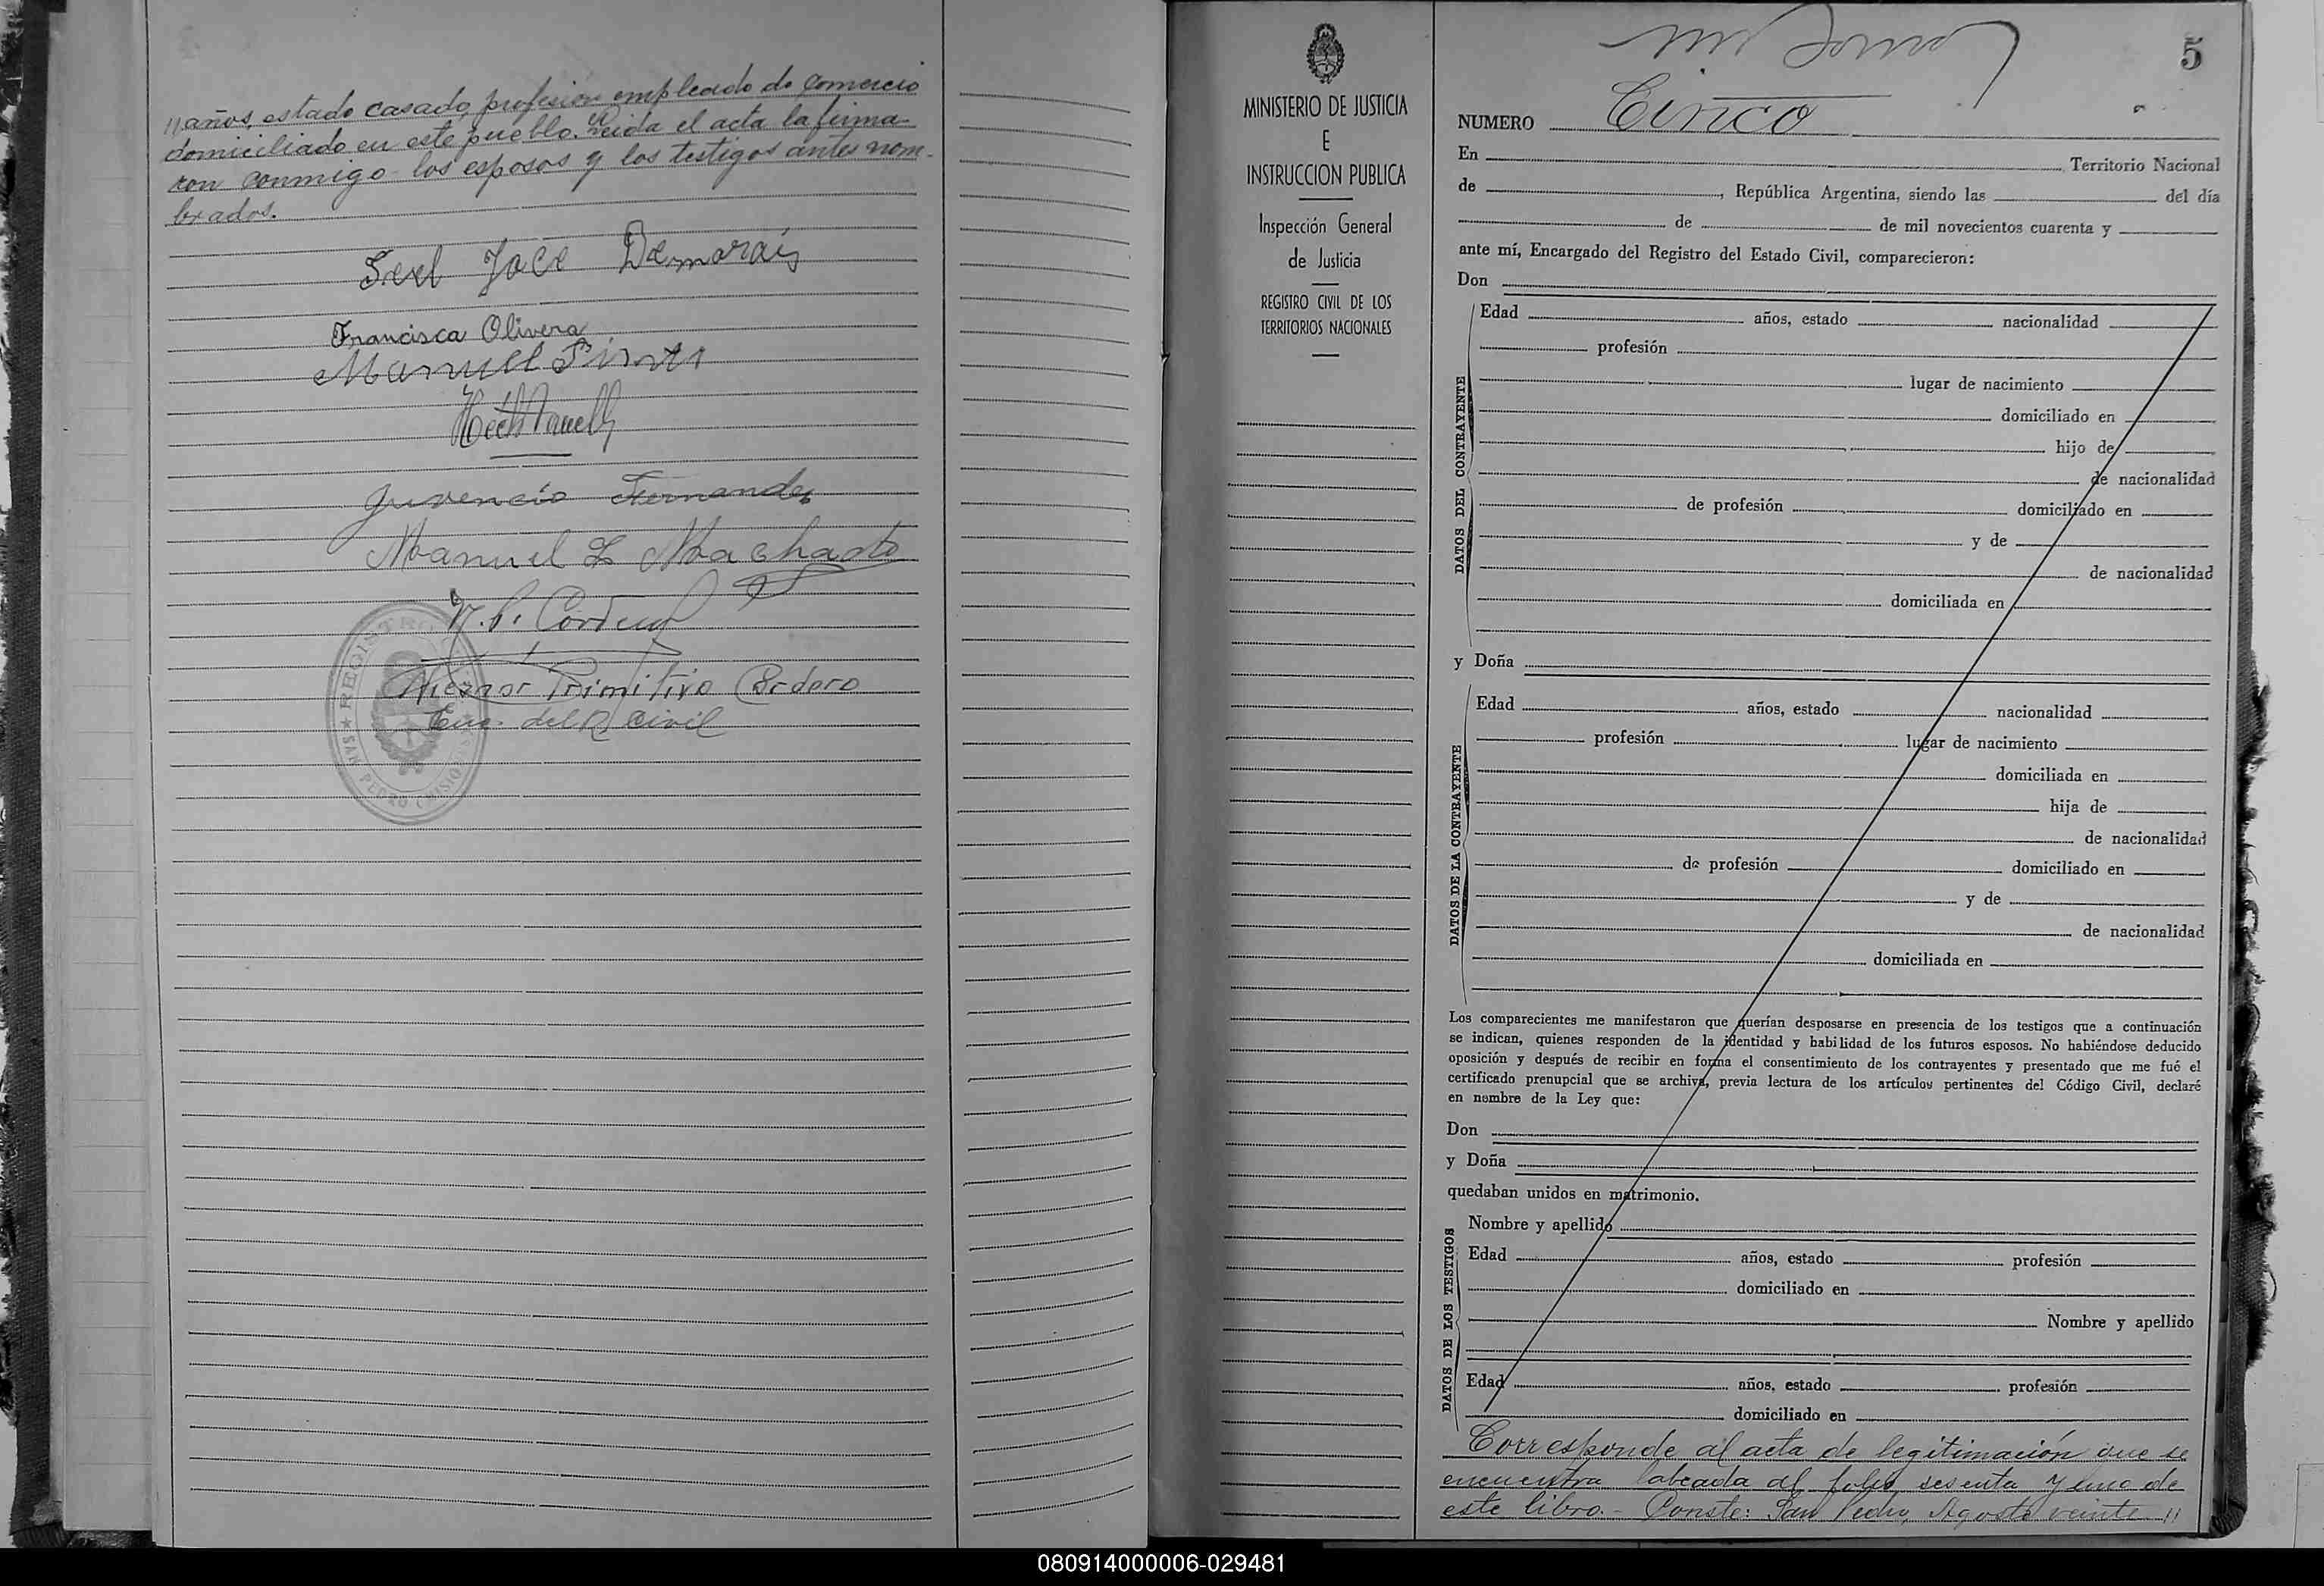 años, estado casado, profesión empleado de comercio
domiciliado en este pueblo. Leida el acta la firma-
ron conmigo los esposos y los testigos antes nom-
brados.
Francisca Olivera
Manuel
Juvencio Fernandez
Manuel L Machado
Nicanor Primitivo Cordero
Enc. del R Civil
REGISTRO
SAN PEDRO (MISIONES)
MINISTERIO DE JUSTICIA
E
INSTRUCCION PUBLICA
Inspección General
de Justicia
REGISTRO CIVIL DE LOS
TERRITORIOS NACIONALES
5
NUMERO Cinco
En Territorio Nacional
de , República Argentina, siendo las del día
de de mil novecientos cuarenta y
ante mí, Encargado del Registro del Estado Civil, comparecieron:
Don
DATOS DEL CONTRAYENTE
Edad años, estado nacionalidad
profesión
lugar de nacimiento
domiciliado en
hijo de
de nacionalidad
de profesión domiciliado en
y de
de nacionalidad
domiciliada en
y Doña
DATOS DE LA CONTRAYENTE
Edad años, estado nacionalidad
profesión lugar de nacimiento
domiciliada en
hija de
de nacionalidad
de profesión domiciliado en
y de
de nacionalidad
domiciliada en
Los comparecientes me manifestaron que querían desposarse en presencia de los testigos que a continuación
se indican, quienes responden de la identidad y habilidad de los futuros esposos. No habiéndose deducido
oposición y después de recibir en forma el consentimiento de los contrayentes y presentado que me fué el
certificado prenupcial que se archiva, previa lectura de los artículos pertinentes del Código Civil, declaré
en nombre de la Ley que:
Don
y Doña
quedaban unidos en matrimonio.
DATOS DE LOS TESTIGOS
Nombre y apellido
Edad años, estado profesión
domiciliado en
Nombre y apellido
Edad años, estado profesión
domiciliado en
Corresponde al acta de legitimación que se
encuentra labrada al folio sesenta y uno de
este libro.- Conste: San Pedro, Agosto veinte
080914000006-029481